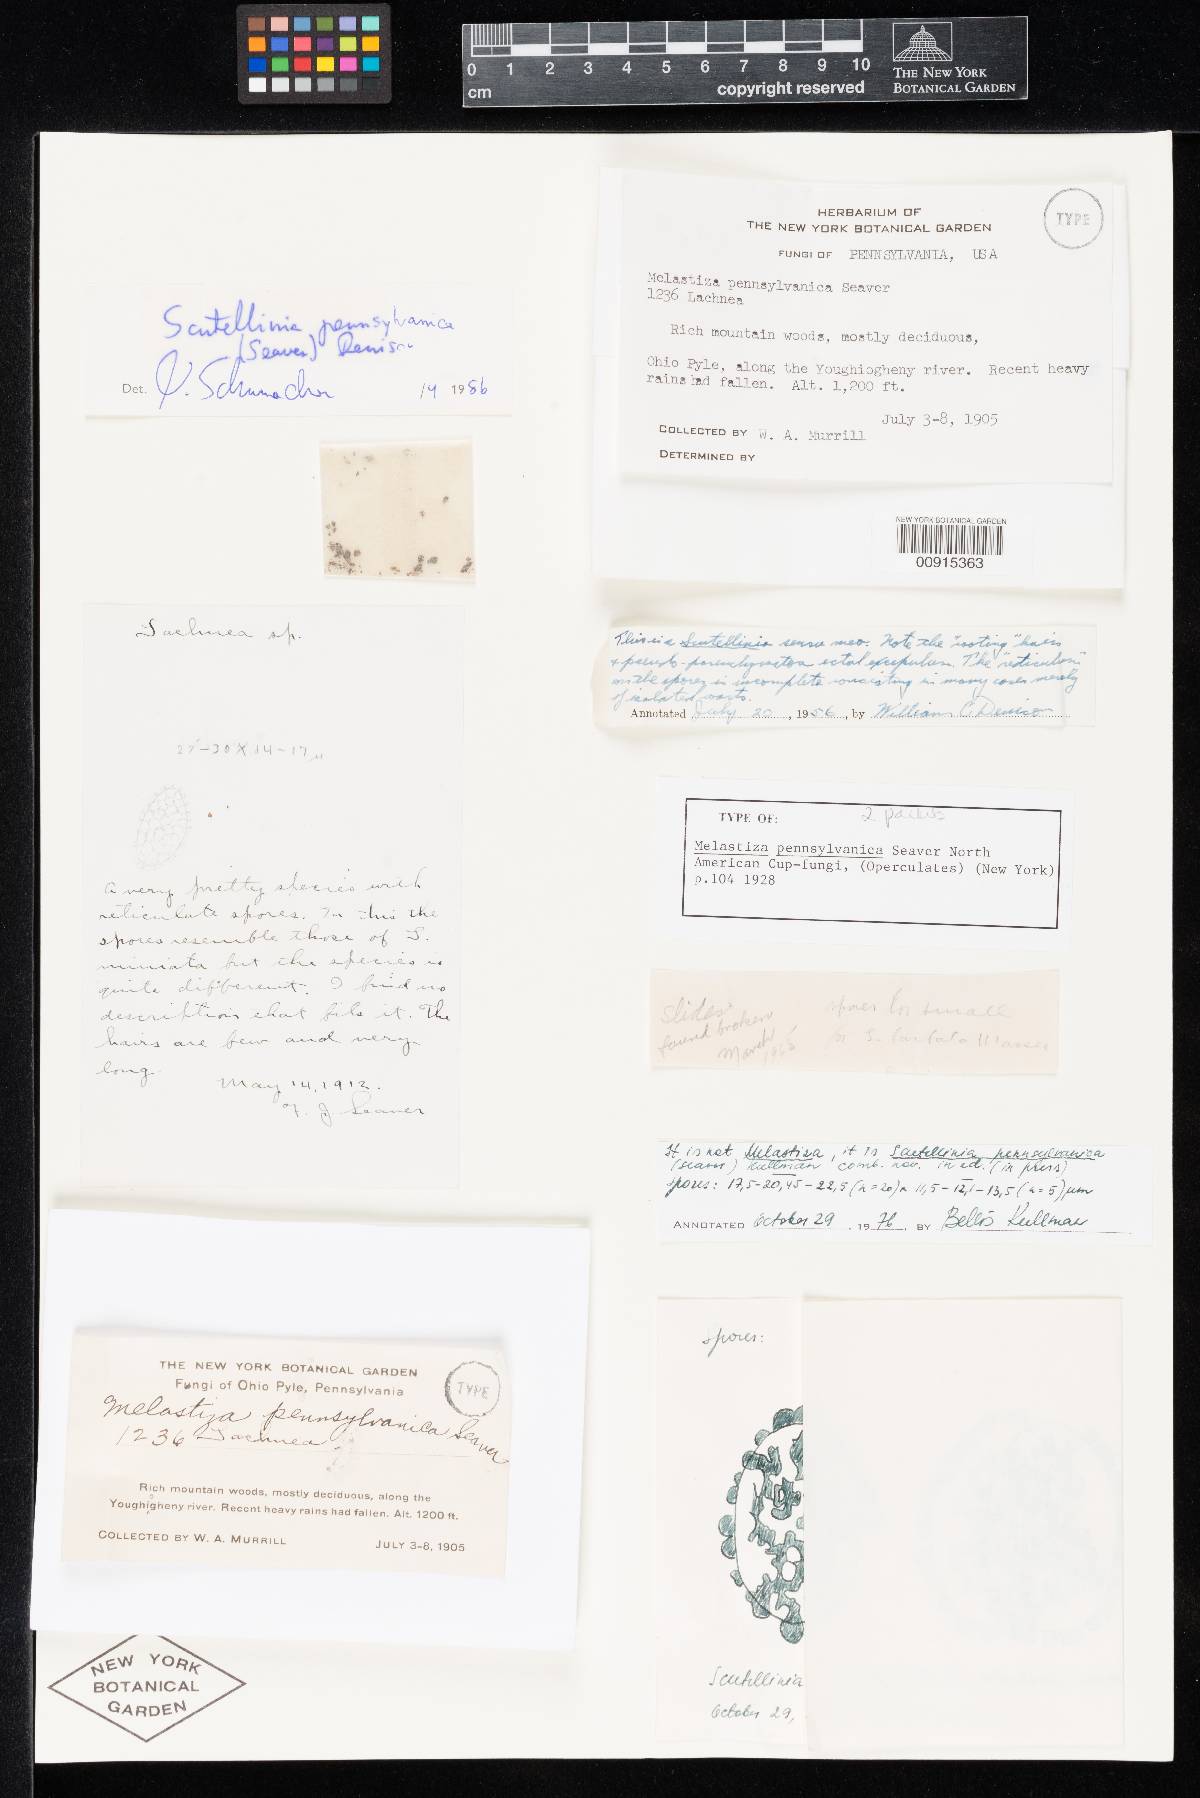 0 1 2 3 4 5 6 7 8 9 10
cm
copyright reserved
THE NEW YORK
BOTANICAL GARDEN
HERBARIUM OF
THE NEW YORK BOTANICAL GARDEN
TYPE
FUNGI OF PENNSYLVANIA, USA
Melastiza pennsylvanica Seaver
1236 Lachnea
Rich mountain woods, mostly deciduous,
Ohio Pyle, along the Youghiogheny river. Recent heavy
rains had fallen. Alt. 1,200 ft.
July 3-8, 1905
COLLECTED BY W. A. Murrill
DETERMINED BY
NEW YORK BOTANICAL GARDEN
00915363
Scutellinia pennsylvanica
(Seaver) Denison
Det. Schumacher 1986
Lachnea sp.
27-30 X 14-17 µ
A very pretty species with
reticulate spores. In this the
spores resemble those of L.
miniata but the species is
quite different. I find no
description that fits it. The
hairs are few and very
long.
May 14, 1912.
F. J. Seaver
This is a Scutellinia sensu meo. Note the "rooting" hairs
& pseudo-parenchymatous ectal excipulum. The "reticulum"
on the spores is incomplete consisting in many cases merely
of isolated warts.
Annotated July 20, 1956, by William C. Denison
TYPE OF: 2 packets
Melastiza pennsylvanica Seaver North
American Cup-fungi, (Operculates) (New York)
p.104 1928
Slides
found broken
March
spores too small
for S.
It is not Melastiza, it is Scutellinia pennsylvanica
(Seaver) Kullman comb. nov. in ed. (in press)
spores: 17,5-20,45-22,5 (n=20) x 11,5-12,1-13,5 (n=5) µm
ANNOTATED October 29, 1976, BY Bellis Kullman
spores:
Scutellinia
October 29,
THE NEW YORK BOTANICAL GARDEN
Fungi of Ohio Pyle, Pennsylvania
TYPE
Melastiza pennsylvanica Seaver
1236 Lachnea
Rich mountain woods, mostly deciduous, along the
Youghigheny river. Recent heavy rains had fallen. Alt. 1200 ft.
COLLECTED BY W. A. MURRILL JULY 3-8, 1905
NEW YORK
BOTANICAL
GARDEN